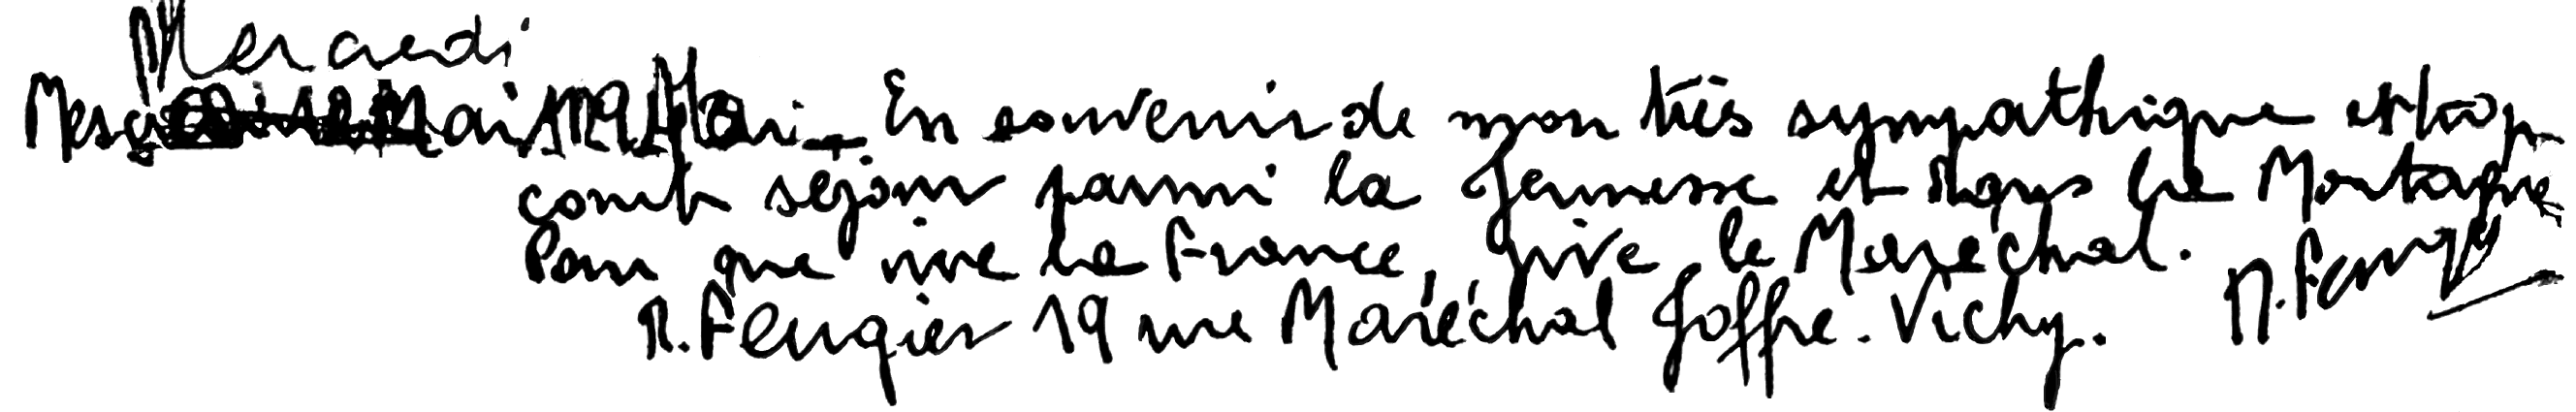 Mercredi
Mai En souvenir de mon très sympathique et trop
court séjour parmi la Jeunesse et la Montagne
Pour que vive la France, vive le Maréchal.
R. Feugier 19 rue Maréchal Joffre. Vichy.